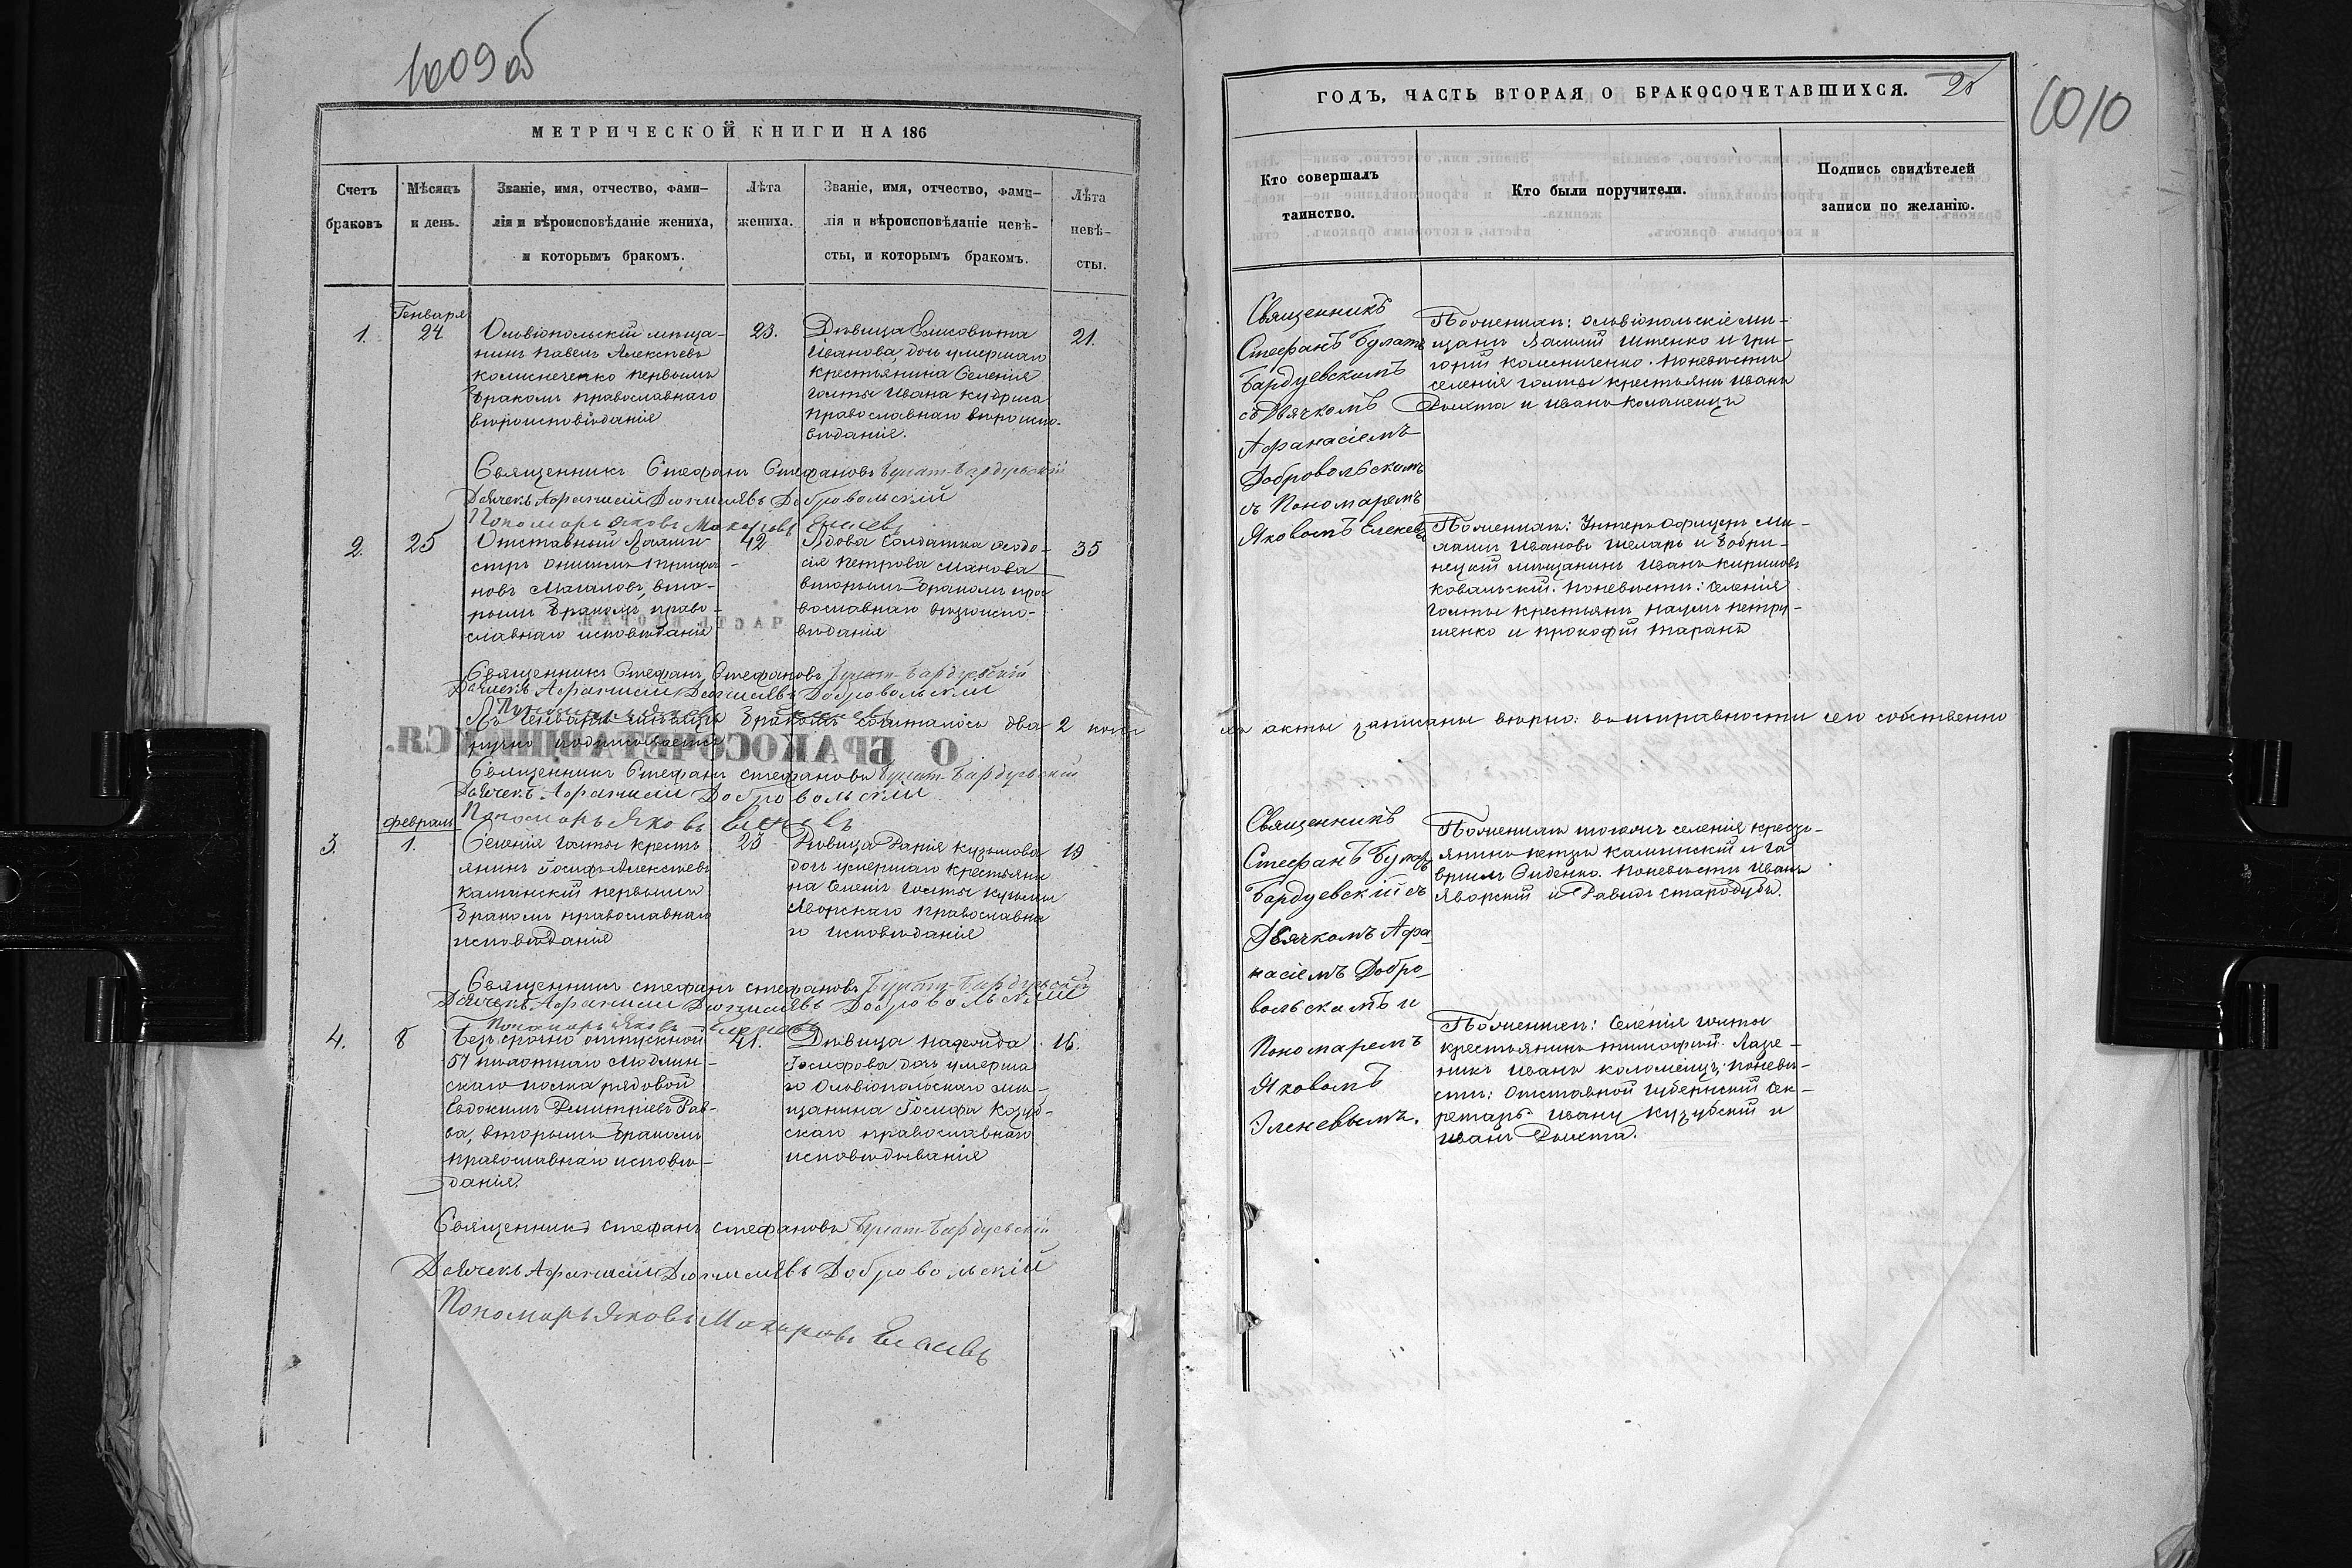 1009 об
МЕТРИЧЕСКОЙ КНИГИ НА 186
Счетъ браковъ
Мѣсяцъ и день.
Званіе, имя, отчество, фами-
лія и вѣроисповѣданіе жениха,
и которымъ бракомъ.
Лѣта жениха.
Званіе, имя, отчество, фами-
лія и вѣроисповѣданіе невѣ-
сты, и которымъ бракомъ.
Лѣта невѣ-
сты.
1.
Генваря
24
Ольвіопольскій мѣща-
нинъ Павелъ Алексѣевъ
первымъ
бракомъ православнаго
вѣроисповѣданія
23.
Дѣвица Елисавета
Иванова дочь умершаго
крестьянина Селенія
Голты Ивана
православнаго вѣроиспо-
вѣданія.
21.
Священникъ Стефанъ Стефановъ Булат-Бардуевскій
Дьячекъ Афанасій Добровольскій
Пономарь Яковъ Макаровъ
2.
25
Отставный
новъ Магаловъ, вто-
рымъ бракомъ, право-
славнаго исповѣданія
42
Вдова Солдатка Ѳеодо-
сія Петрова Махова
вторымъ бракомъ пра
вославнаго вѣроиспо-
вѣданія
35
Священникъ Стефанъ Стефановъ Булат-Бардуевскій
Дьячекъ Афанасій Добровольскій
Въ Генварѣ мѣсяцѣ бракомъ сочиталось два 2
ручно подписываемся
Священникъ Стефанъ Стефановъ Булат-Бардуевскій
Дьячекъ Афанасій Добровольскій
Пономарь Яковъ
3.
февраль
1.
Селенія Голты кресть
янинъ Іосифъ Алексѣевъ
Каминскій первымъ
бракомъ православнаго
исповѣданія
23
Дѣвица Дарія Кузьмова
дочь умершаго крестьяни
на Селенія Голты Кузьмы
Яворскаго православна
го исповѣданія
19
Священникъ Стефанъ Стефановъ Булат-Бардуевскій
Дьячекъ Афанасій Добровольскій
Пономарь Яковъ
4.
8
Безсрочно отпускной
57 пѣхотнаго Модлин-
скаго полка рядовой
Евдокимъ Димитріевъ Рав-
ва, вторымъ бракомъ
православнаго исповѣ-
данія.
41.
Дѣвица
Іосифова дочь умерша
го Ольвіопольскаго мѣ-
щанина Іосифа Козуб-
скаго православнаго
исповѣдыванія
16.
Священникъ Стефанъ Стефановъ Булат-Бардуевскій
Дьячекъ Афанасій Добровольскій
Пономарь Яковъ Макаровъ
ГОДЪ, ЧАСТЬ ВТОРАЯ О БРАКОСОЧЕТАВШИХСЯ.
1010
Кто совершалъ
таинство.
Кто были поручители.
Подпись свидѣтелей
записи по желанію.
Священникъ
Стефанъ Булатъ
Бардуевскомъ
съ Дьячкомъ
Афанасіемъ
Добровольскимъ
съ Пономаремъ
Яковомъ
По женихѣ: Ольвіопольскіе мѣ-
щане Василій и Гри-
горій По невѣсты
селенія Голты крестьяни Иванъ
и Иванъ Коломеецъ
По женихѣ: Унтеръ Офицеръ
Ивановъ и Бобри-
нецкій мѣщанинъ Иванъ Кириловъ
Ковальскій. По невѣсти: Селенія
Голты крестьяни Наумъ Петру-
шенко и Прокофій Таранъ
акты записаны вѣрно: въ исправности чего собственно
Священникъ
Стефанъ Булатъ
Бардуевскій съ
Дьячкомъ Афа-
насіемъ Добро-
вольскимъ и
Пономаремъ
Яковомъ
Еленевымъ.
По женихѣ тогожъ селенія кресть-
янинъ Петръ Каминскій и Га
врилъ Сиденко. По невѣсти Иванъ
Яворскій и Давидъ Стародубъ.
По женихѣ: Селенія Голты
крестьянинъ Тимофей Лазе-
никъ Иванъ Коломіецъ; по невѣ-
сти: Отставной Губернскій Сек-
ретарь Иванъ Козубскій и
Иванъ